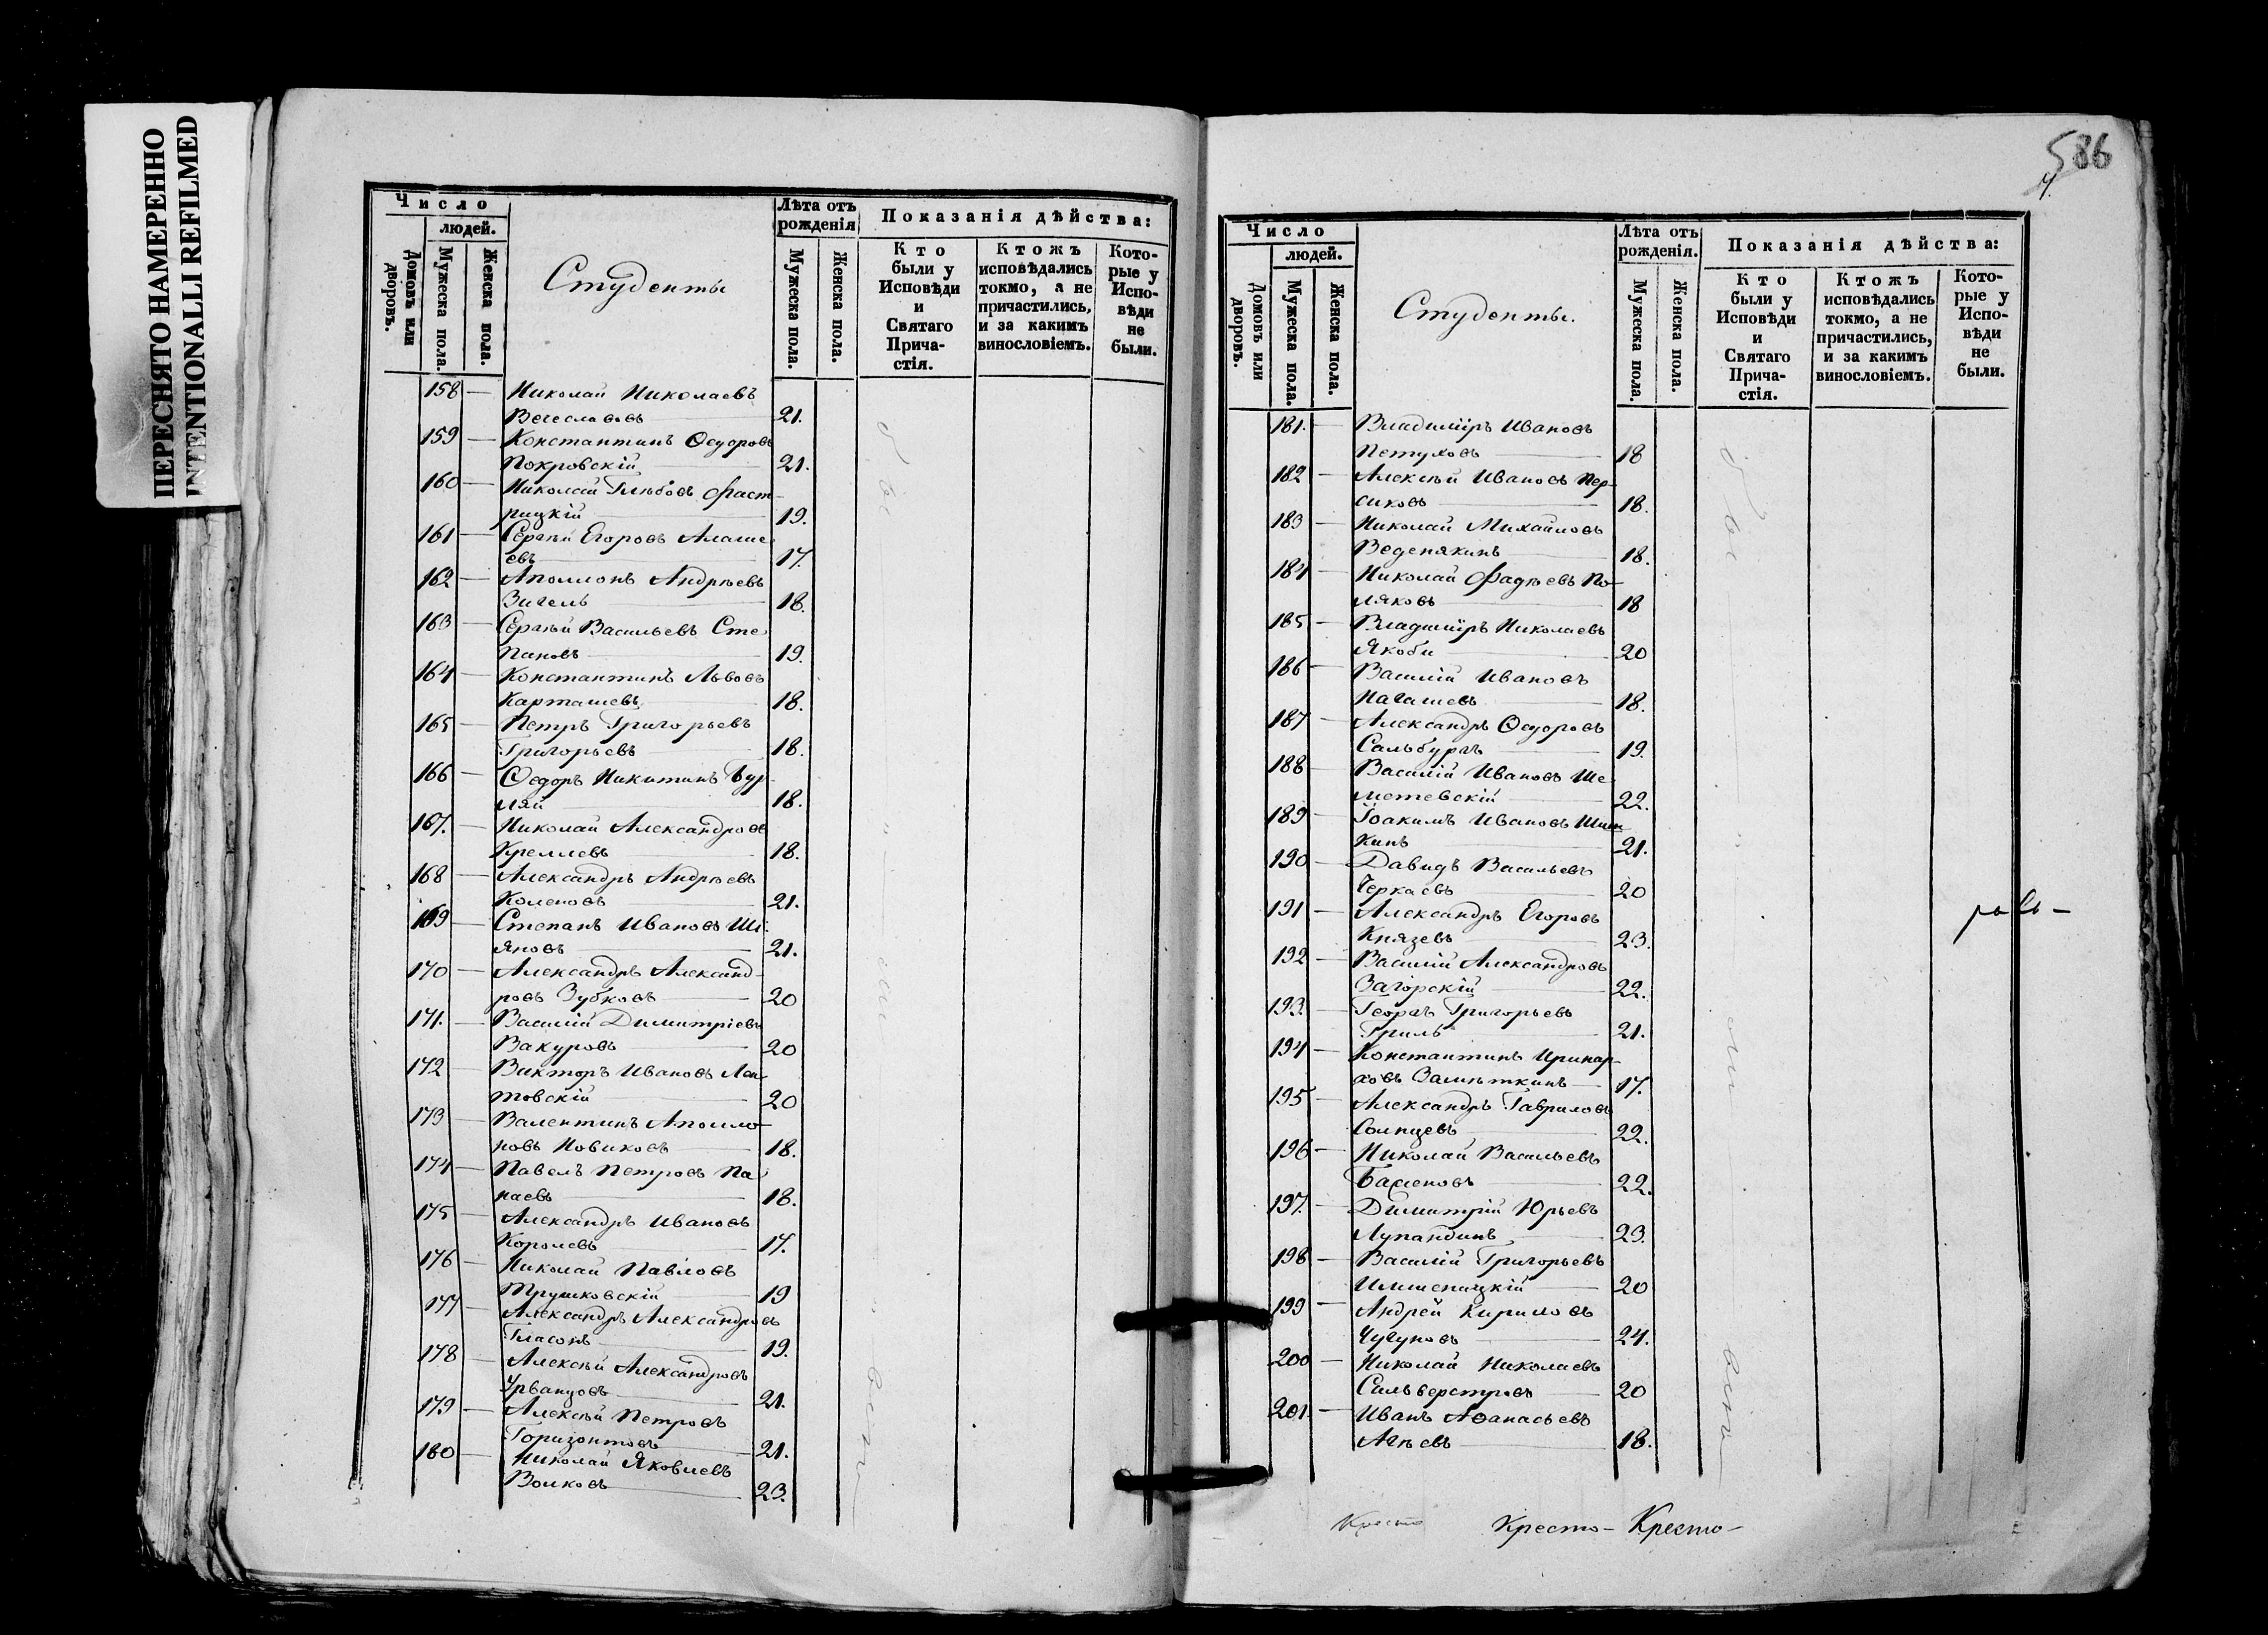 ПЕРЕСНЯТО НАМЕРЕННО
INTENTIONALLI REFILMED
Число
людей.
Домовъ или дворовъ.
Мужеска пола.
Женска пола.
Студенты
Лѣта отъ рожденія
Мужеска пола.
Женска пола.
Показанія дѣйства:
Кто были у Исповѣди и Святаго Прича-стія.
Ктожъ исповѣдались токмо, а не причастились, и за какимъ винословіемъ.
Кото-рые у Испо-вѣди не были.
158 — Николай Николаевъ
Вечеслововъ 21.
159 — Константинъ Ѳедоровъ
Покровскій 21.
160 — Николай Глѣбовъ Фаст-
рицкій 19.
161 — Сергѣй Егоровъ Алаше
евъ 17.
162 — Аполлонъ Андрѣевъ
Зигель 18.
163 — Сергѣй Васильевъ Сте-
пановъ 19.
164 — Константинъ Львовъ
Карташевъ 18.
165 — Петръ Григорьевъ
Григорьевъ 18.
166 — Ѳедоръ Никитинъ Бур-
ляй 18.
167. — Николай Александровъ
Кремлевъ 18.
168 — Александръ Андрѣевъ
Коленовъ 21.
169 — Степанъ Ивановъ Ши-
яновъ 21.
170 — Александръ Александ-
ровъ Зубковъ 20
171. — Василій Димитріевъ
Вакуровъ 20
172 — Викторъ Ивановъ Лен-
товскій 20
173 — Валентинъ Аполло-
новъ Новиковъ 18.
174 — Павелъ Петровъ Па-
наевъ 18.
175 — Александръ Ивановъ
Королевъ 17.
176 — Николай Павловъ
Трушковскій 19
177 — Александръ Александровъ
Гласонъ 19.
178 — Алексѣй Александровъ
Урванцовъ 21.
179 — Алексѣй Петровъ
Горизонтовъ 21.
180 — Николай Яковлевъ
Волковъ 23.
586
Число
людей.
Домовъ или дворовъ.
Мужеска пола.
Женска пола.
Студенты.
Лѣта отъ рожденія.
Мужеска пола.
Женска пола.
Показанія дѣйства:
Кто были у Исповѣди и Святаго Прича-стія.
Ктожъ исповѣдались токмо, а не причастились, и за какимъ винословіемъ.
Кото-рые у Испо-вѣди не были.
181. — Владиміръ Ивановъ
Петуховъ 18
182 — Алексѣй Ивановъ Пер-
сиковъ 18.
183 — Николай Михайловъ
Веденякинъ 18.
184 — Николай Фадѣевъ По-
ляковъ 18
185 — Владиміръ Николаевъ
Якоби 20
186 — Василій Ивановъ
Пагашевъ 18.
187 — Александръ Ѳедоровъ
Сальбургъ 19.
188 — Василій Ивановъ Ше
метевскій 22.
189 — Іоакимъ Ивановъ Шиш
кинъ 21.
190 — Давидъ Васильевъ
Черкаевъ 20
191 — Александръ Егоровъ
Князевъ 23.
192 — Василій Александровъ
Загорскій 22.
193. — Георгъ Григорьевъ
Гриль 21.
194 — Константинъ Иринар-
ховъ Замѣткинъ 17.
195 — Александръ Гавриловъ
Солнцевъ 22.
196 — Николай Васильевъ
Басленовъ 22.
197. — Димитрій Юрьевъ
Лупандинъ 23.
198 — Василій Григорьевъ
20
199 — Андрей Кириловъ
Чугуновъ 24.
200 — Николай Николаевъ
Сильверстровъ 20
201. — Иванъ Аѳанасьевъ
Агѣевъ 18.
Кресто
Кресто-
Кресто-